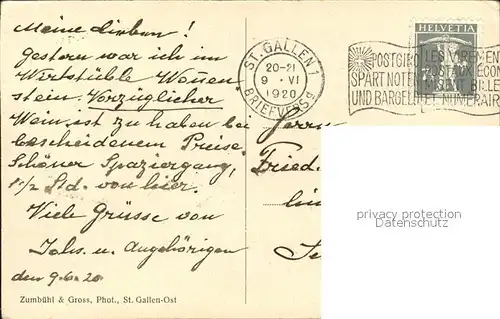 Meine Lieben!
Gestern war ich im
Wertstüble Weuen
stein. Vorzüglicher
Wein ist zu haben bei
bescheidenem Preise.
Schöner Spaziergang,
1 1/2 Std. von hier.
Viele Grüsse von
Johs. u. Angehörigen
den 9.6.20
Zumbühl & Gross, Phot., St. Gallen-Ost
ST. GALLEN 1
20-21
9. VI
1920
BRIEFVERS
HELVETIA
POSTGIRO LES VIREMENT
SPART NOTEN POSTAUX ECON
UND BARGELD ET NUMERAIR
Herrn
Fried
privacy protection
Datenschutz